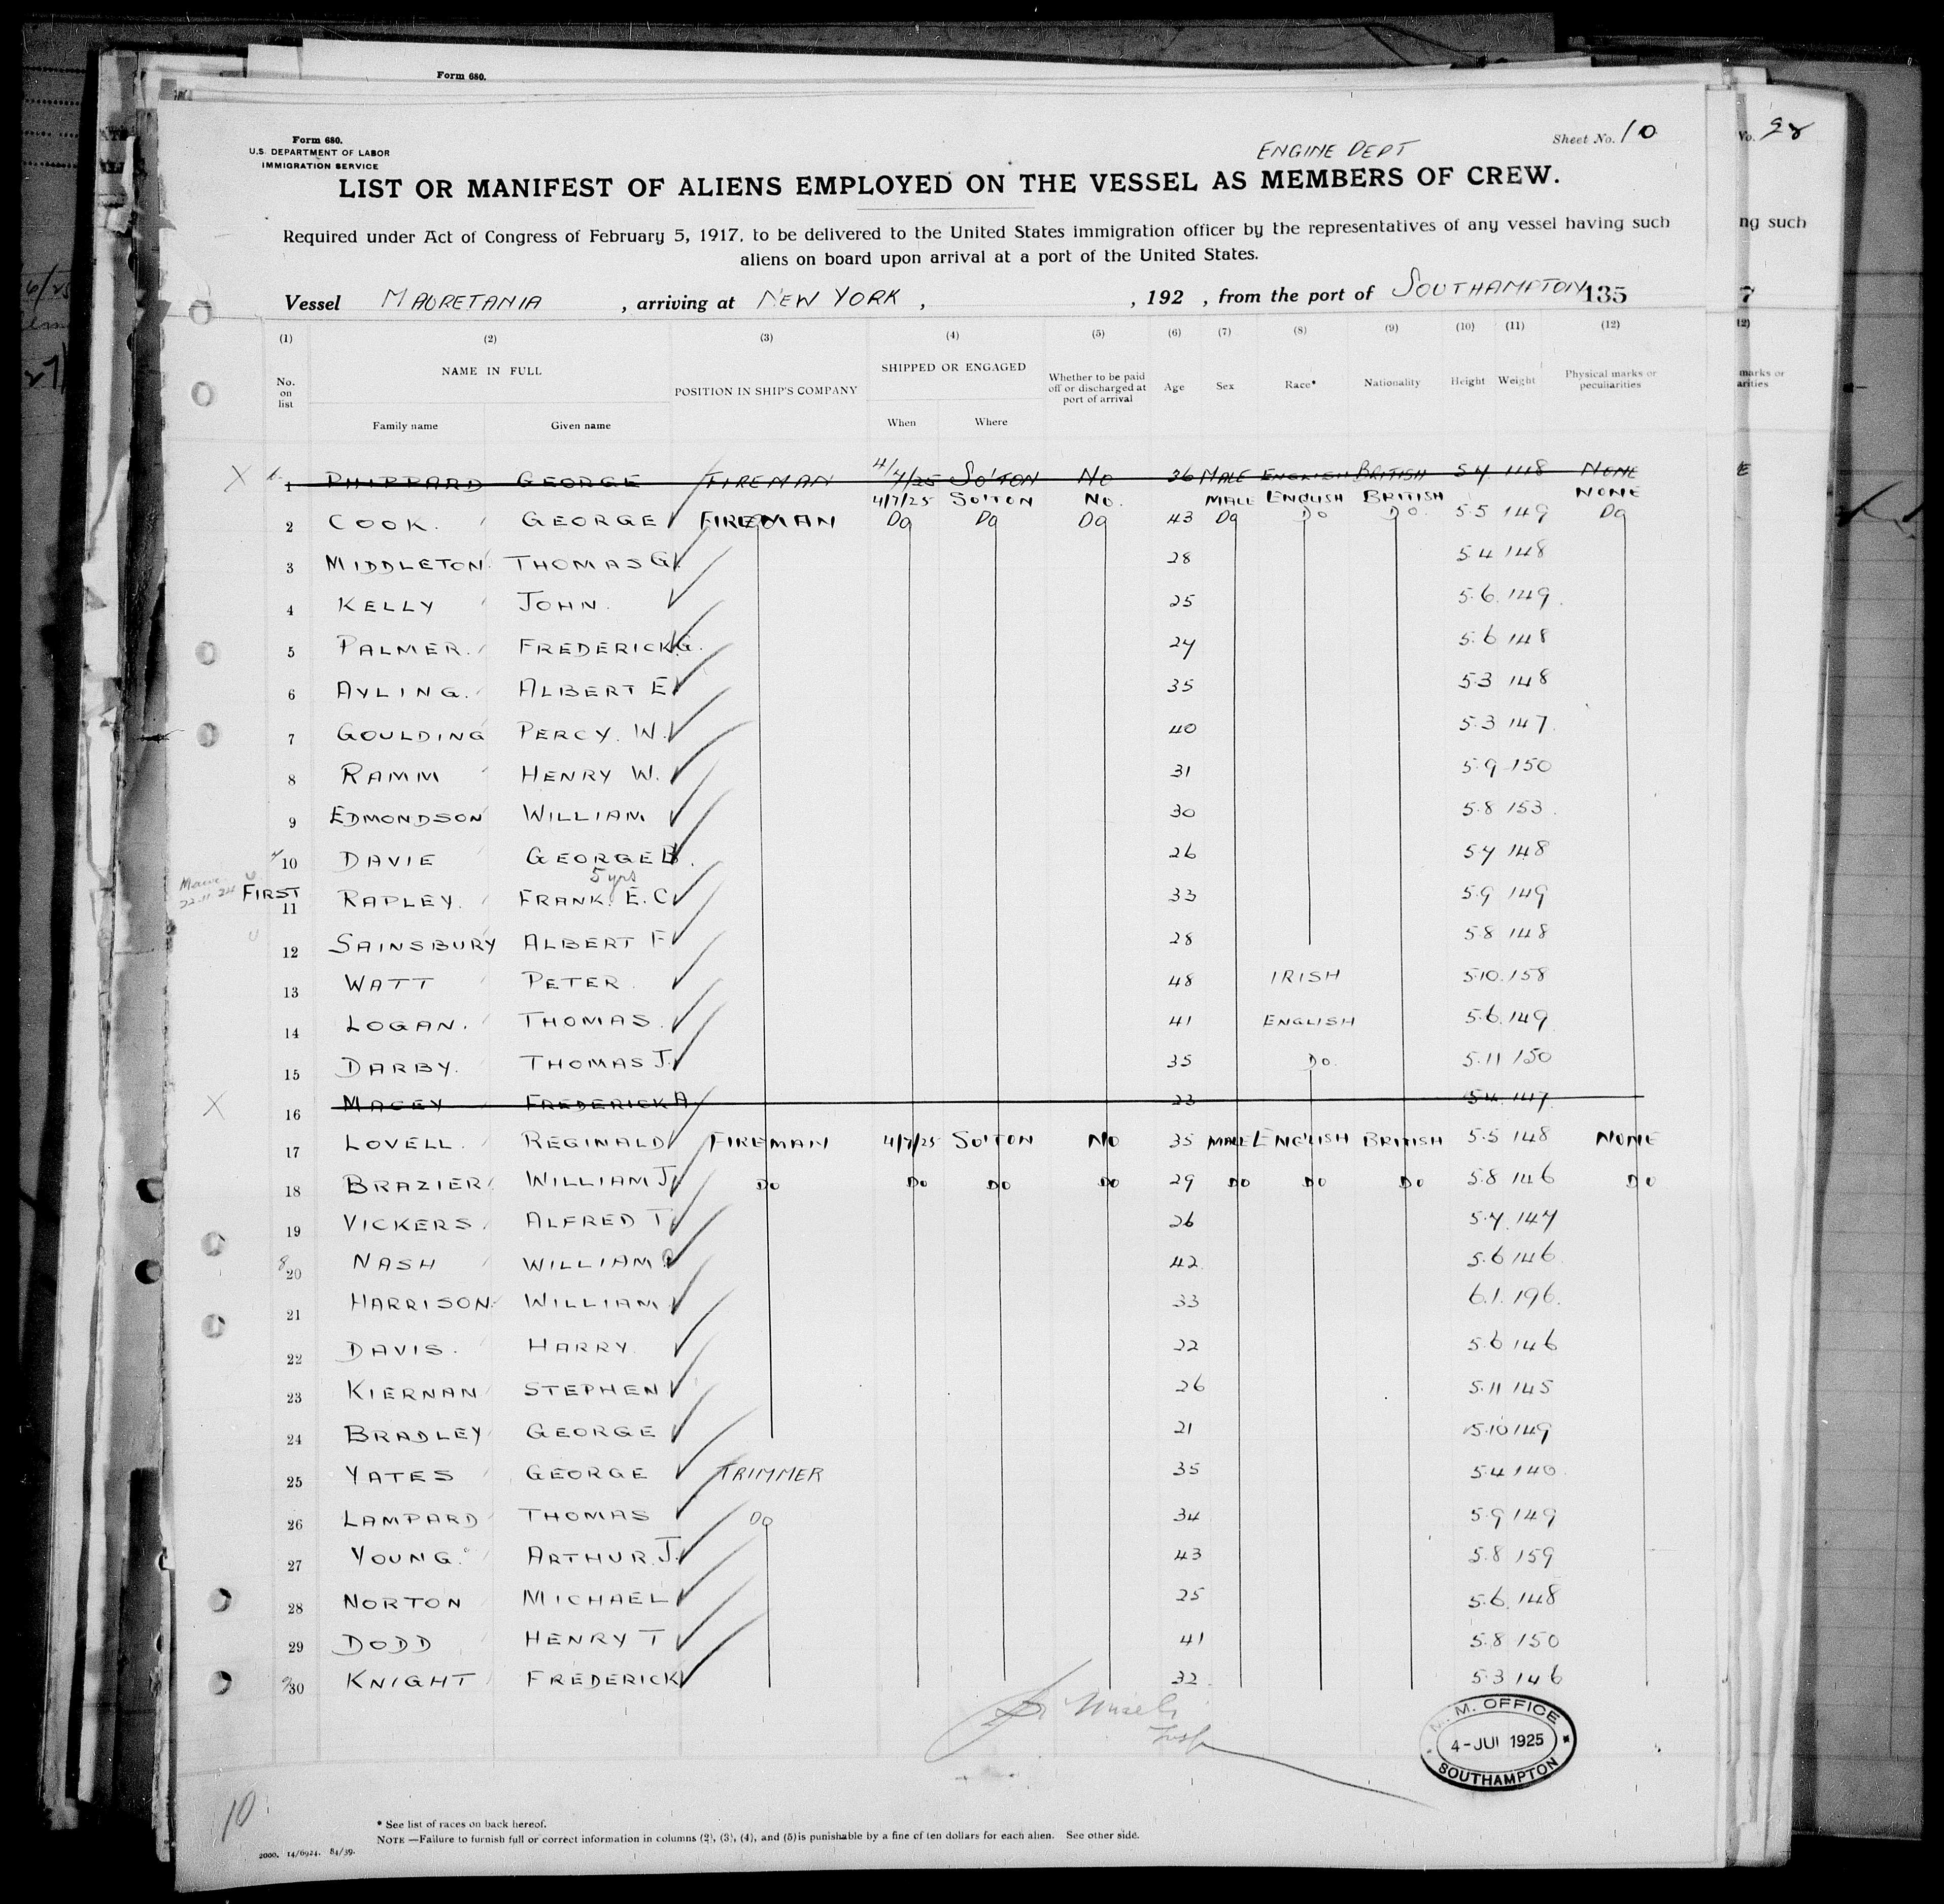 Form 680.
Form 680.
U.S. DEPARTMENT OF LABOR
IMMIGRATION SERVICE
ENGINE DEPT
Sheet No. 10
LIST OR MANIFEST OF ALIENS EMPLOYED ON THE VESSEL AS MEMBERS OF CREW.
Required under Act of Congress of February 5, 1917, to be delivered to the United States immigration officer by the representatives of any vessel having such
aliens on board upon arrival at a port of the United States.
Vessel MAURETANIA, arriving at NEW YORK, , 192 , from the port of SOUTHAMPTON 135
(1) (2) (3) (4) (5) (6) (7) (8) (9) (10) (11) (12)
No. on list NAME IN FULL POSITION IN SHIP'S COMPANY SHIPPED OR ENGAGED Whether to be paid off or discharged at port of arrival Age Sex Race* Nationality Height Weight Physical marks or peculiarities
Family name Given name When Where
1 PHIPPARD GEORGE FIREMAN 4/7/25 SO'TON NO 36 MALE ENGLISH BRITISH 5.7 148 NONE
4/7/25 SO'TON NO. MALE ENGLISH BRITISH NONE
2 COOK. GEORGE FIREMAN DO DO DO 43 DO DO DO. 5.5 149 DO
3 MIDDLETON THOMAS G. 28 5.4 148
4 KELLY JOHN. 25 5.6. 149.
5 PALMER. FREDERICK G. 24 5.6 148
6 AYLING. ALBERT E 35 5.3 148
7 GOULDING PERCY. W. 40 5.3 147.
8 RAMM HENRY W. 31 5.9 150
9 EDMONDSON WILLIAM 30 5.8 153.
10 DAVIE GEORGE B. 26 5.7 148
5 yrs
22-11-24 FIRST
11 RAPLEY. FRANK. E. C 33 5.9 149
12 SAINSBURY ALBERT F 28 5.8 148
13 WATT PETER 48 IRISH 5.10. 158
14 LOGAN. THOMAS. 41 ENGLISH 5.6. 149
15 DARBY. THOMAS J. 35 DO. 5.11 150
16 MACEY FREDERICK A 23 5.4. 147
17 LOVELL. REGINALD FIREMAN 4/7/25 SO'TON NO 35 MALE ENGLISH BRITISH 5.5 148 NONE
18 BRAZIER WILLIAM J DO DO DO DO 29 DO DO DO 5.8 146 DO
19 VICKERS. ALFRED T. 26 5.7. 147
20 NASH WILLIAM 42 5.6 146
21 HARRISON. WILLIAM 33 6.1. 196.
22 DAVIS. HARRY 22 5.6 146
23 KIERNAN STEPHEN 26 5.11 145
24 BRADLEY GEORGE 21 5.10 149
25 YATES GEORGE TRIMMER 35 5.4 140
26 LAMPARD THOMAS DO 34 5.9 149
27 YOUNG. ARTHUR. J. 43 5.8 159
28 NORTON MICHAEL 25 5.6. 148
29 DODD HENRY T 41 5.8 150
30 KNIGHT FREDERICK 32. 5.3 146
M. M. OFFICE
4-JUL 1925
SOUTHAMPTON
10
* See list of races on back hereof.
NOTE —Failure to furnish full or correct information in columns (2), (3), (4), and (5) is punishable by a fine of ten dollars for each alien. See other side.
2000. 14/6924. 84/39.
No.
ng such
7
marks or
arities